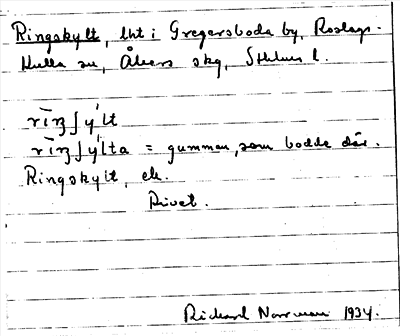 Ringskylt, lht i Gregersboda by, Roslags-
Kulla sn, Åkers skg, Sthlms l.
rīŋʃýlt
rīŋʃýlta = gumman, som bodde där.
Ringskylt, ek.
Rivet.
Rickard Norrman 1934.